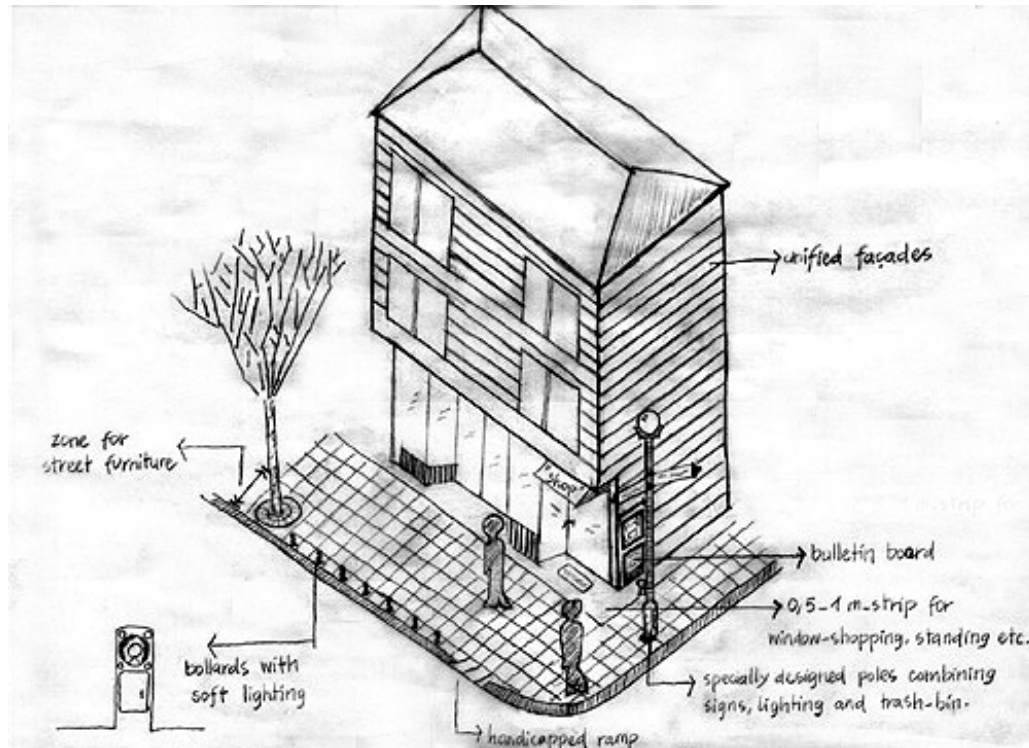 unified façades
zone for
street furniture
"shop"
bulletin board
0,5-1 m-strip for
window-shopping, standing etc.
bollards with
soft lighting
specially designed poles combining
signs, lighting and trash-bin.
handicapped ramp